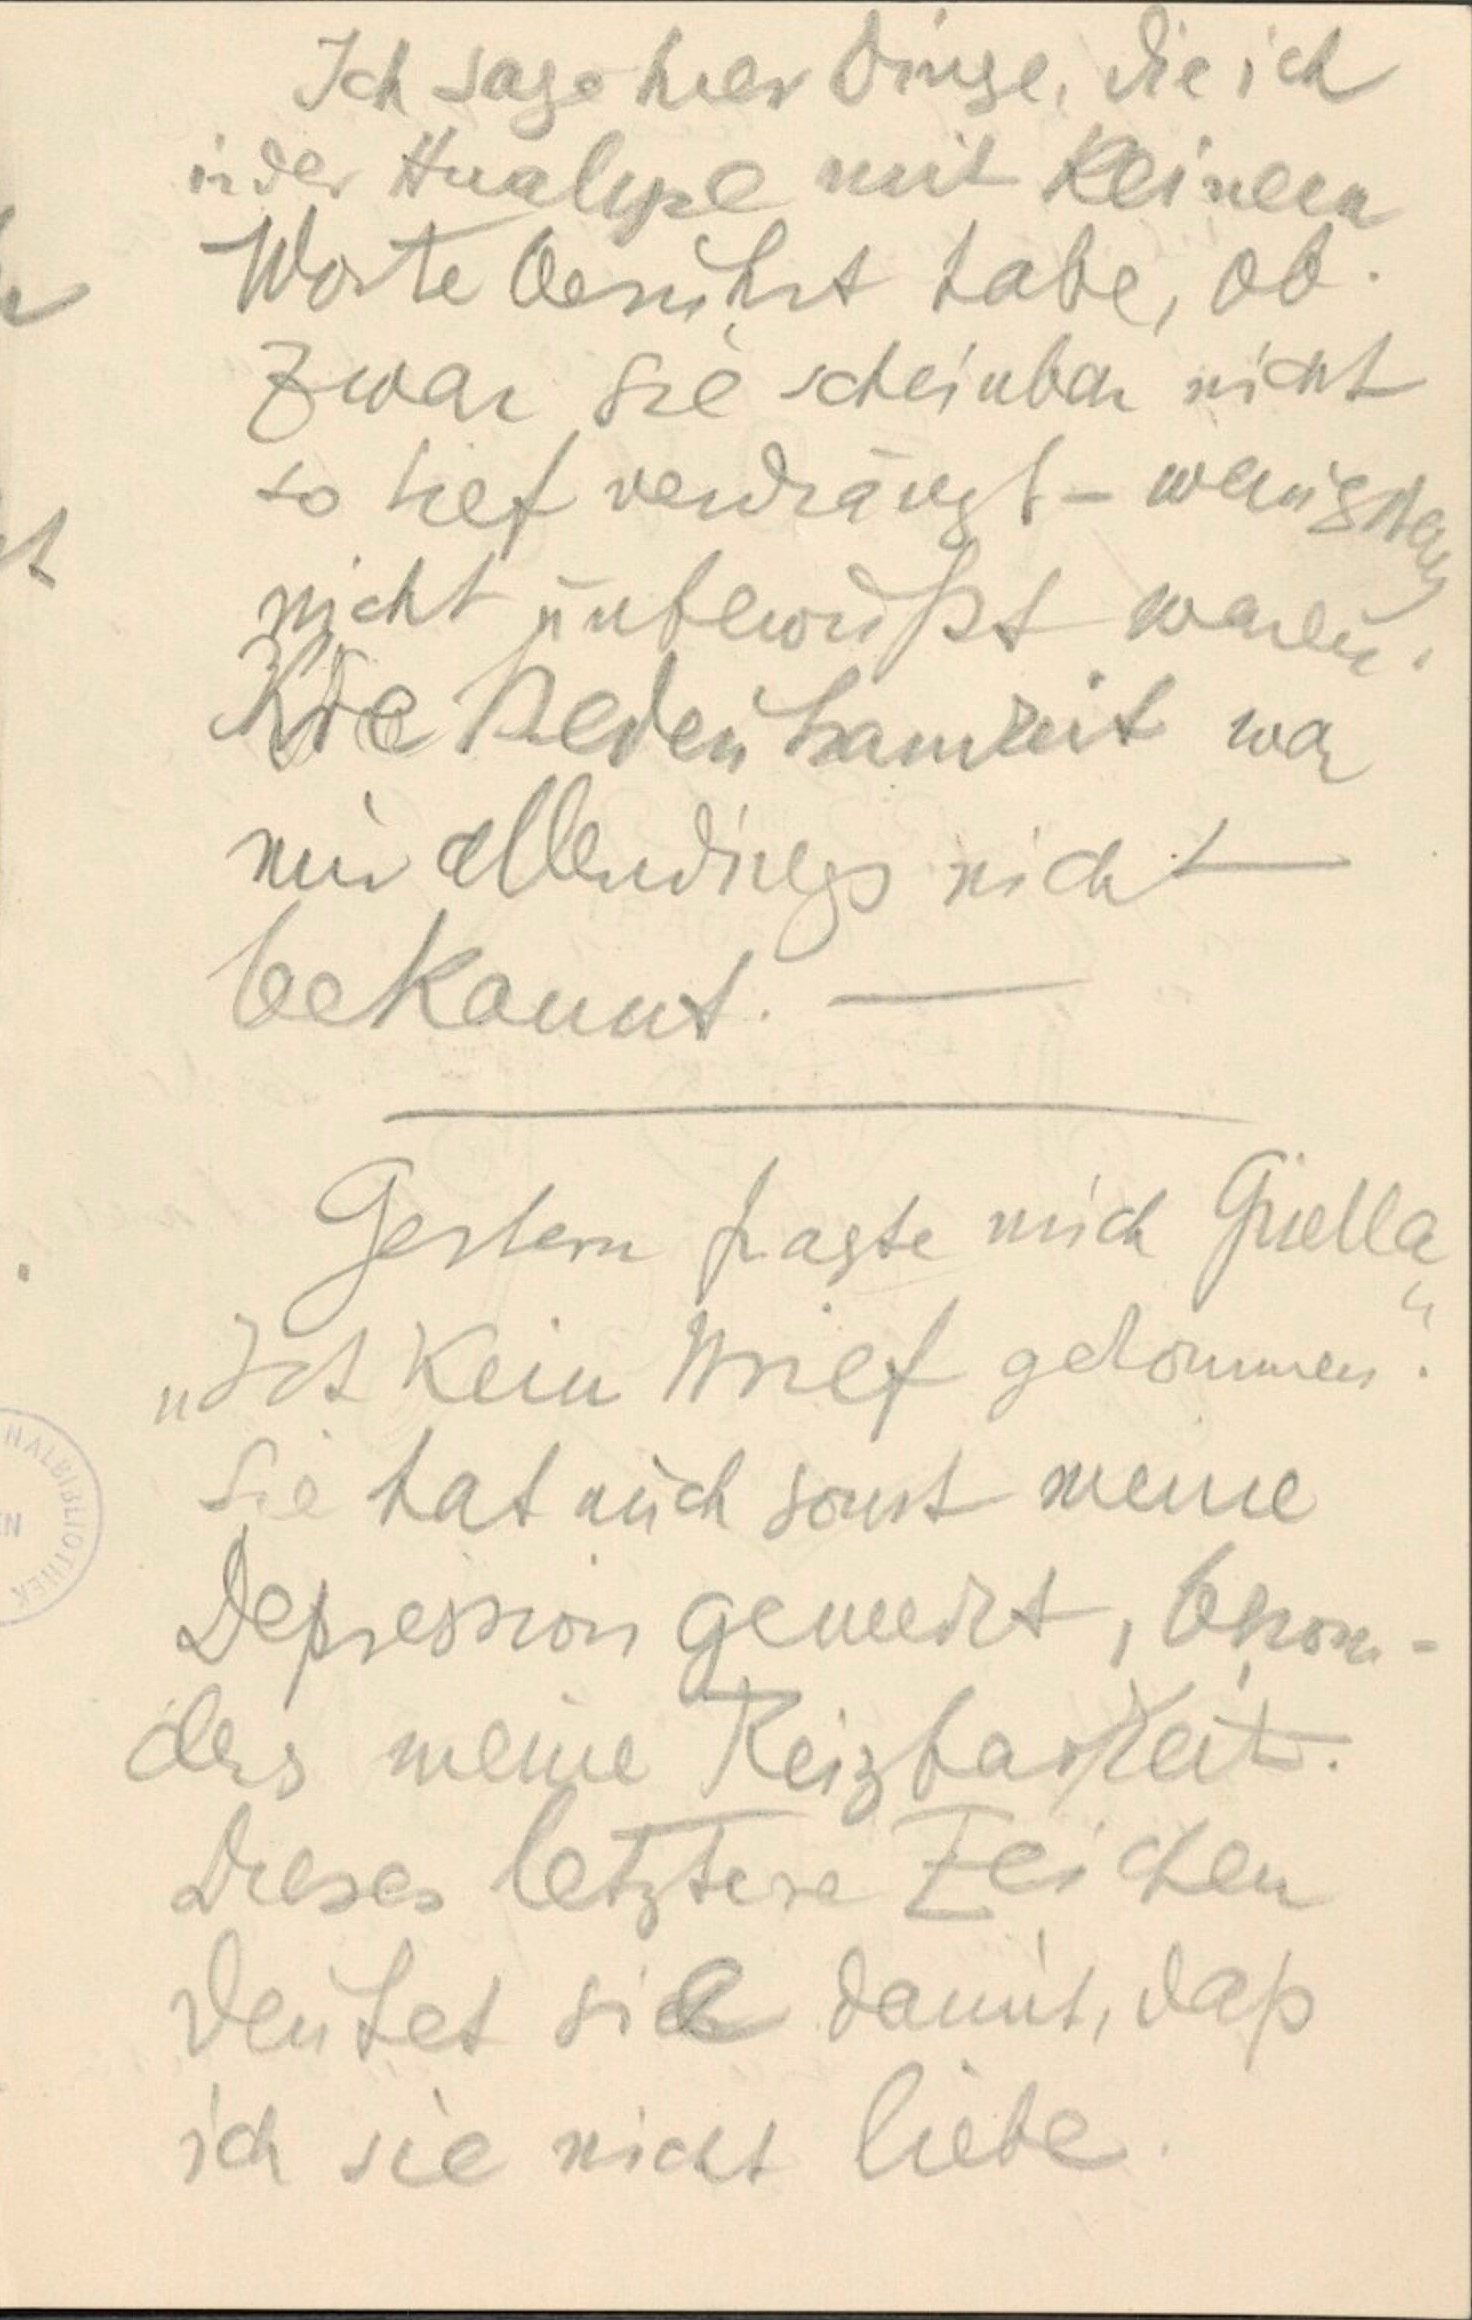 Ich sage hier Dinge, die ich
in der Analyse mit keinem
Worte berührt habe, ob-
zwar sie scheinbar nicht
so tief verdrängt – wenigstens
nicht unbewußt waren.
Die Bedeutsamkeit war
mir allerdings nicht
bekannt. —
Gestern fragte mich Grisella
„Ist kein Brief gekommen“.
Sie hat auch sonst meine
Depression gemerkt, beson-
ders meine Reizbarkeit.
Dieses letztere Zeichen
deutet sie damit, daß
ich sie nicht liebe.